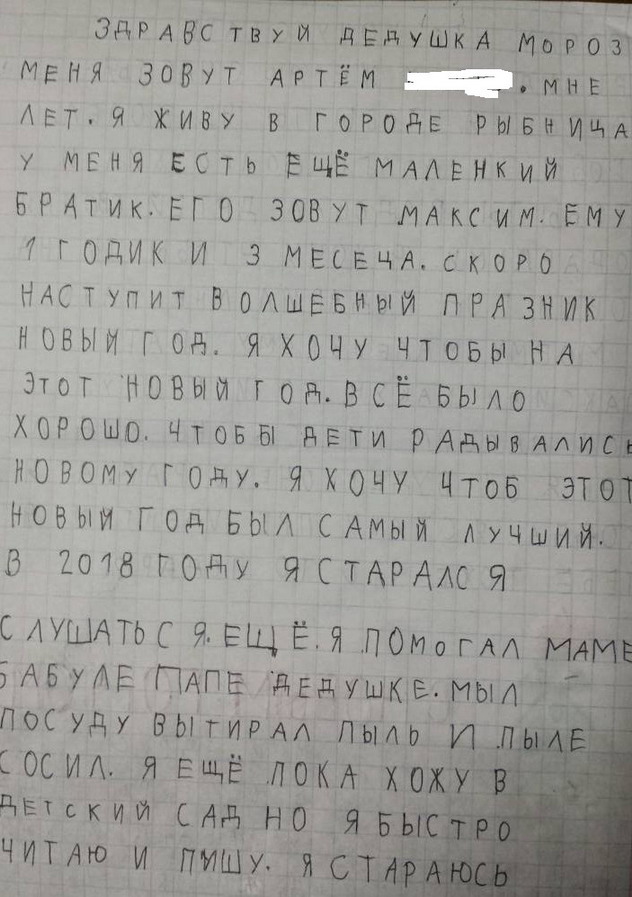 ЗДРАВСТВУЙ ДЕДУШКА МОРОЗ
МЕНЯ ЗОВУТ АРТЁМ . МНЕ
ЛЕТ. Я ЖИВУ В ГОРОДЕ РЫБНИЦА
У МЕНЯ ЕСТЬ ЕЩЁ МАЛЕНКИЙ
БРАТИК. ЕГО ЗОВУТ МАКСИМ. ЕМУ
1 ГОДИК И 3 МЕСЕЦА. СКОРО
НАСТУПИТ ВОЛШЕБНЫЙ ПРАЗНИК
НОВЫЙ ГОД. Я ХОЧУ ЧТОБЫ НА
ЭТОТ НОВЫЙ ГОД. ВСЁ БЫЛО
ХОРОШО. ЧТОБЫ ДЕТИ РАДЫВАЛИСЬ
НОВОМУ ГОДУ. Я ХОЧУ ЧТОБ ЭТОТ
НОВЫЙ ГОД БЫЛ САМЫЙ ЛУЧШИЙ.
В 2018 ГОДУ Я СТАРАЛСЯ
СЛУШАТЬСЯ. ЕЩЁ. Я ПОМОГАЛ МАМЕ
БАБУЛЕ ПАПЕ ДЕДУШКЕ. МЫЛ
ПОСУДУ ВЫТИРАЛ ПЫЛЬ И ПЫЛЕ
СОСИЛ. Я ЕЩЁ ПОКА ХОЖУ В
ДЕТСКИЙ САД НО Я БЫСТРО
ЧИТАЮ И ПИШУ. Я СТАРАЮСЬ